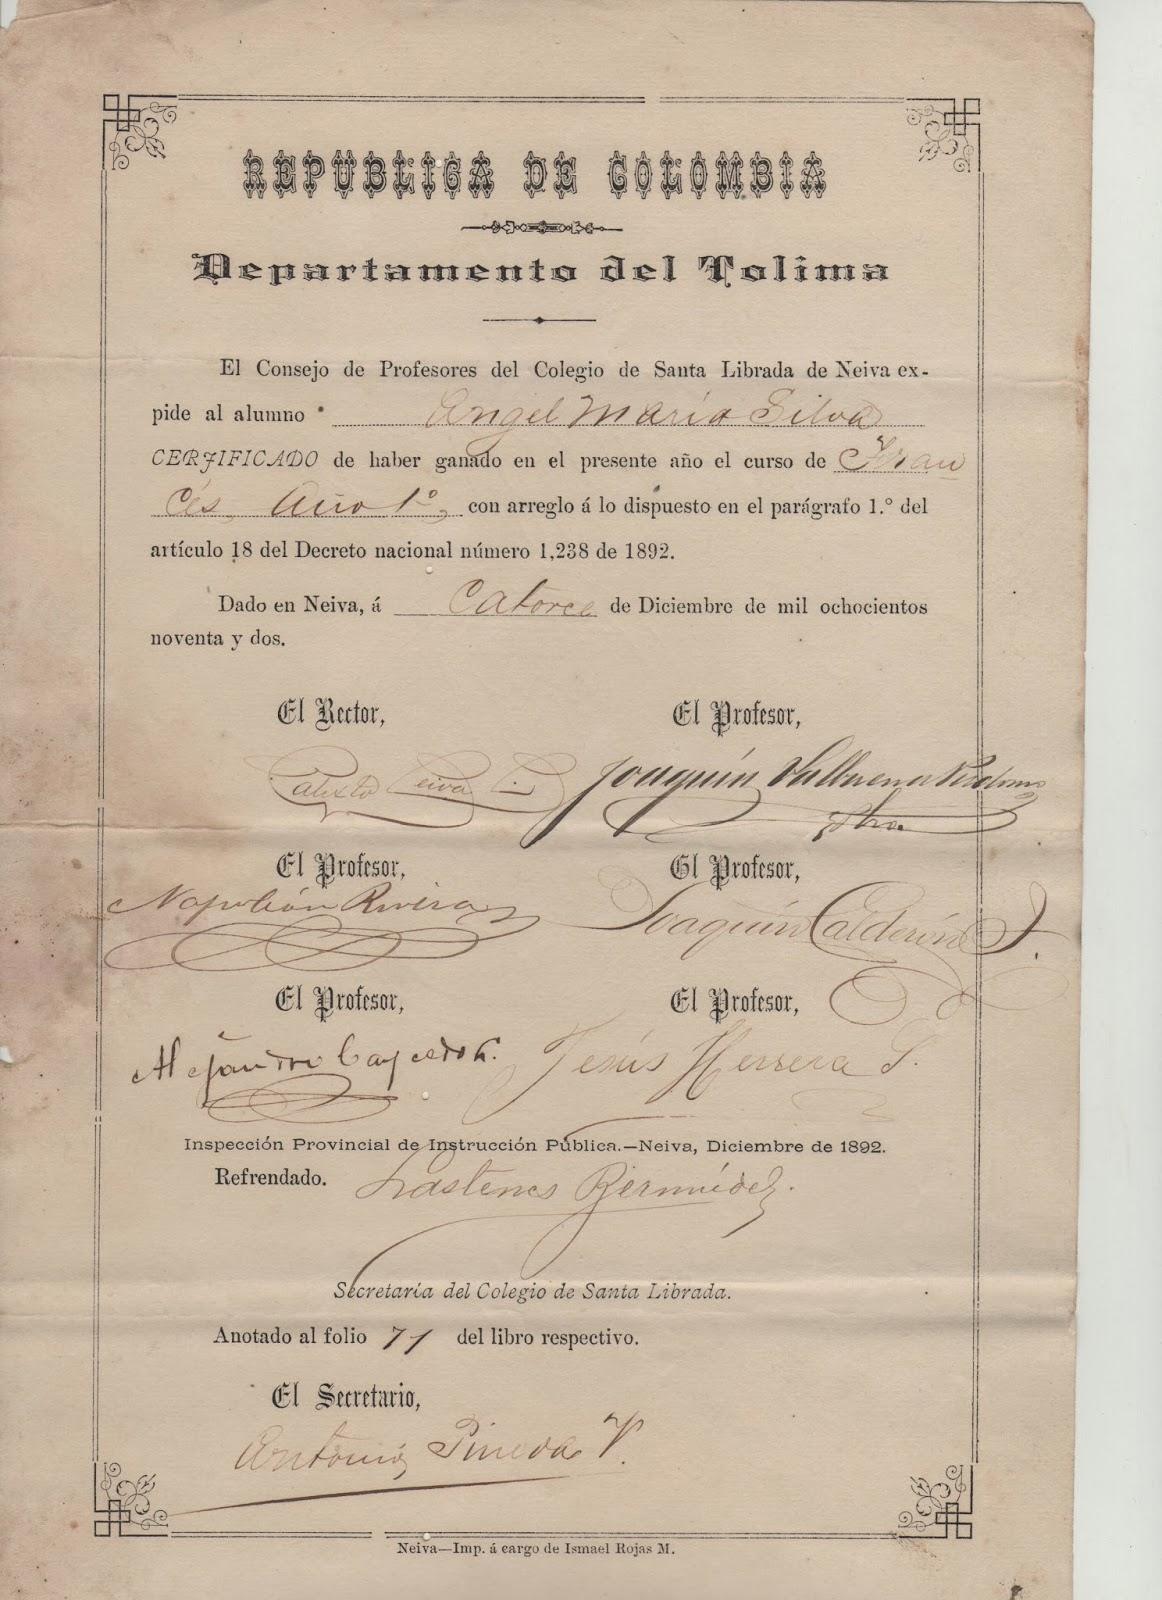 REPUBLICA DE COLOMBIA
Departamento del Tolima
El Consejo de Profesores del Colegio de Santa Librada de Neiva ex-
pide al alumno Angel María Silva
CERTIFICADO de haber ganado en el presente año el curso de Fran
cés, Año 1º, con arreglo á lo dispuesto en el parágrafo 1.º del
artículo 18 del Decreto nacional número 1,238 de 1892.
Dado en Neiva, á Catorce de Diciembre de mil ochocientos
noventa y dos.
El Rector, El Profesor,
Calixto Leiva Joaquín Valbuena Perdomo
El Profesor, Gl Profesor,
Napoleón Rivera Joaquín Calderón
El Profesor, El Profesor,
Alejandro Caycedo Jesús Herrera S.
Inspección Provincial de Instrucción Pública.—Neiva, Diciembre de 1892.
Refrendado. Lastenes Bermúdez.
Secretaría del Colegio de Santa Librada.
Anotado al folio 71 del libro respectivo.
El Secretario,
Antonio Pineda V.
Neiva—Imp. á cargo de Ismael Rojas M.